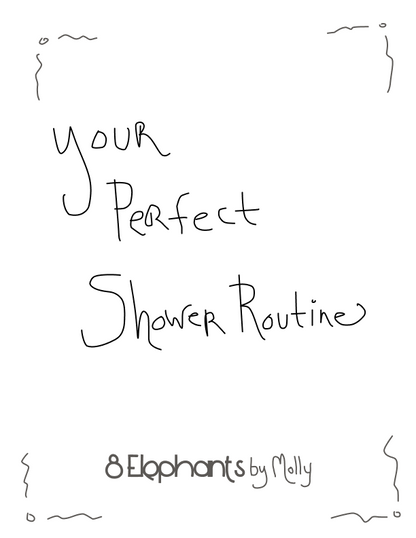 your
Perfect
Shower Routine
8 Elephants by Molly